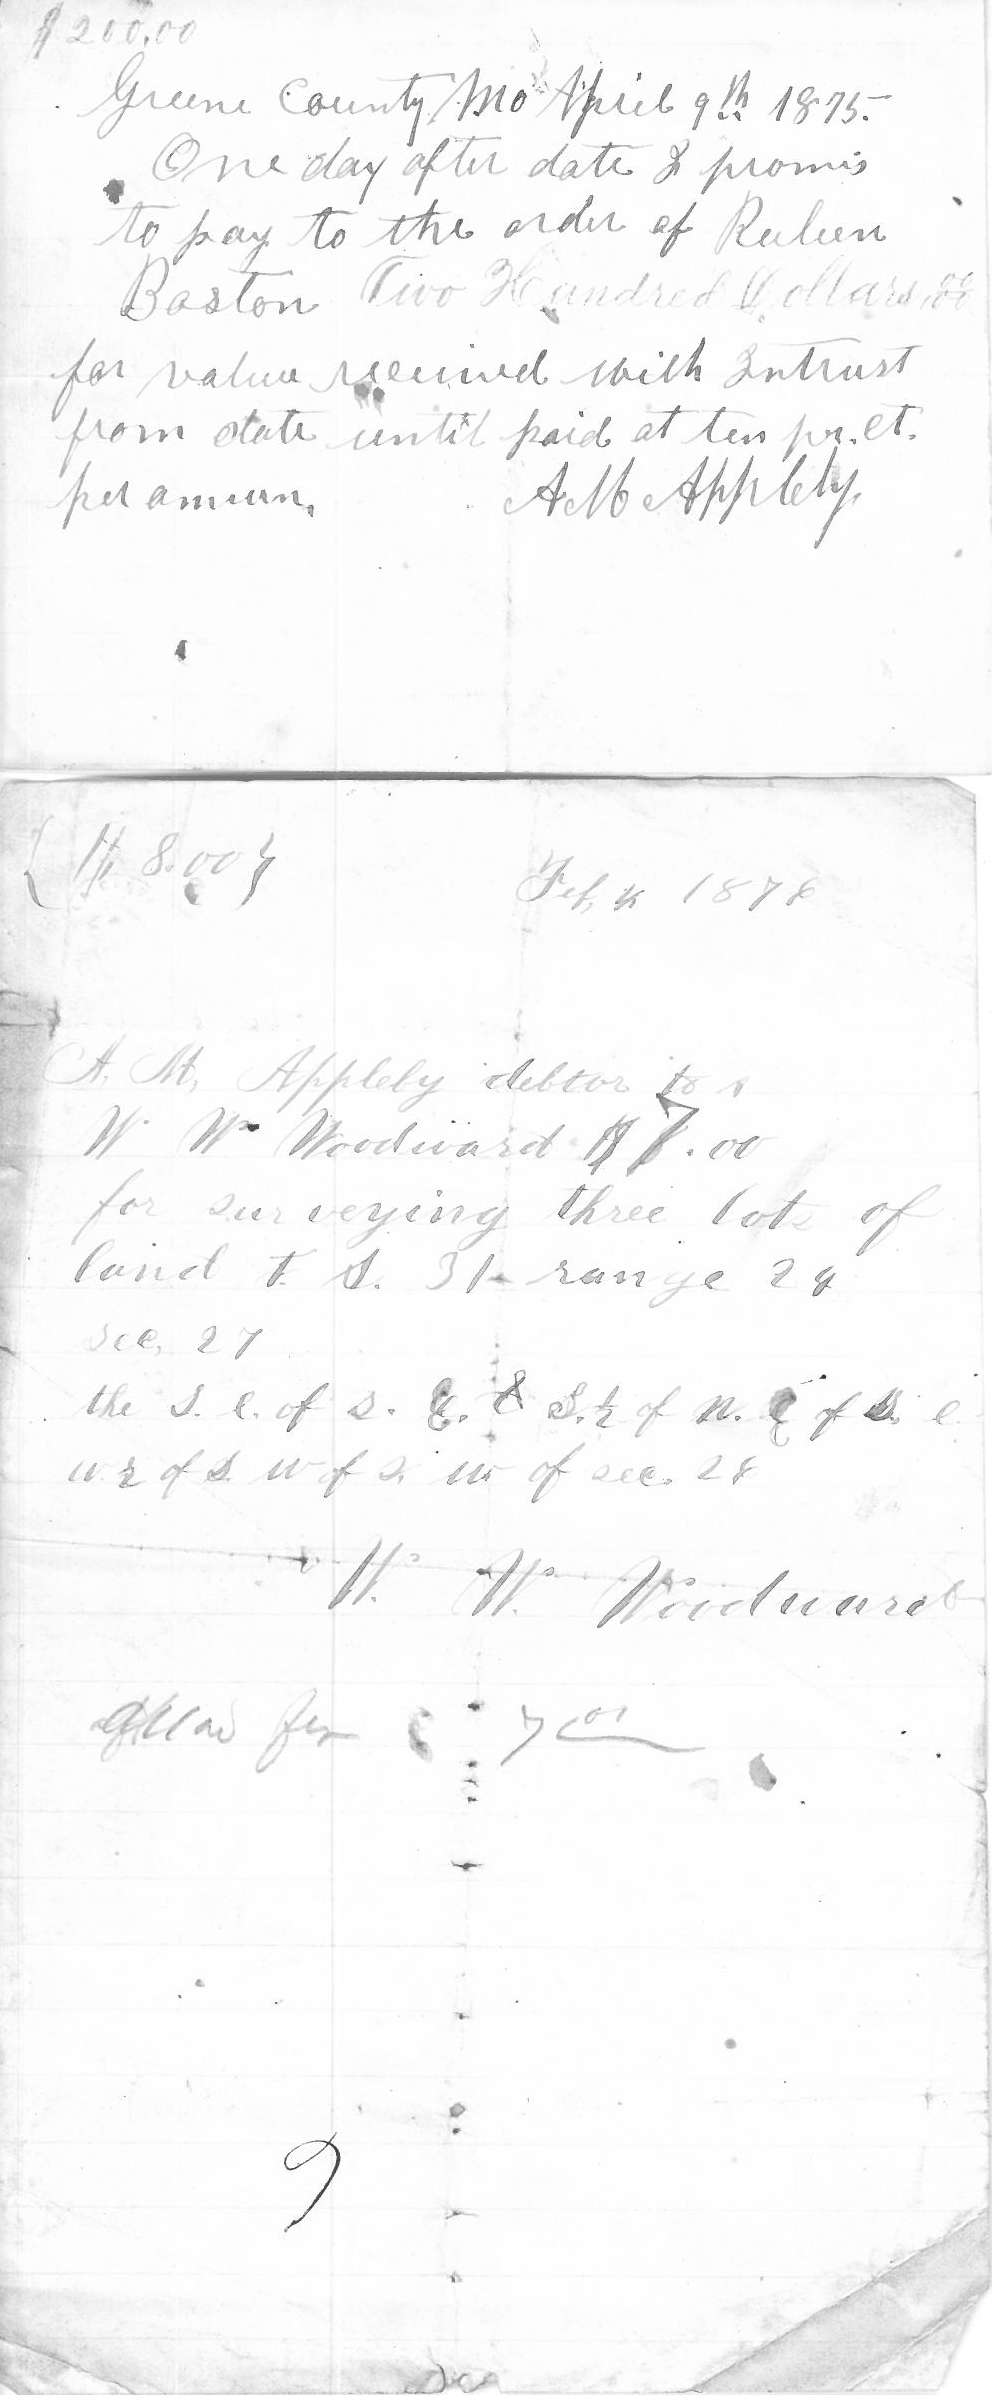 $200.00
Greene County Mo April 9th 1875.
One day after date I promis
to pay to the order of Reuben
Baston Two Hundred Dollars
for value received with Intrust
from date until paid at ten pr. ct.
per annum. A M Appleby.
{ $ 8.00 }
Feb, 1878
A. M. Appleby debtor to
W W Woodward $ 7.00
for surveying three lots of
land t. S. 31 range 24
sec. 27
the S. e. of s. E. & S. ½ of n. E of S. e
w ½ of S. w of s. w of sec. 28
W. W. Woodward
7 00
9